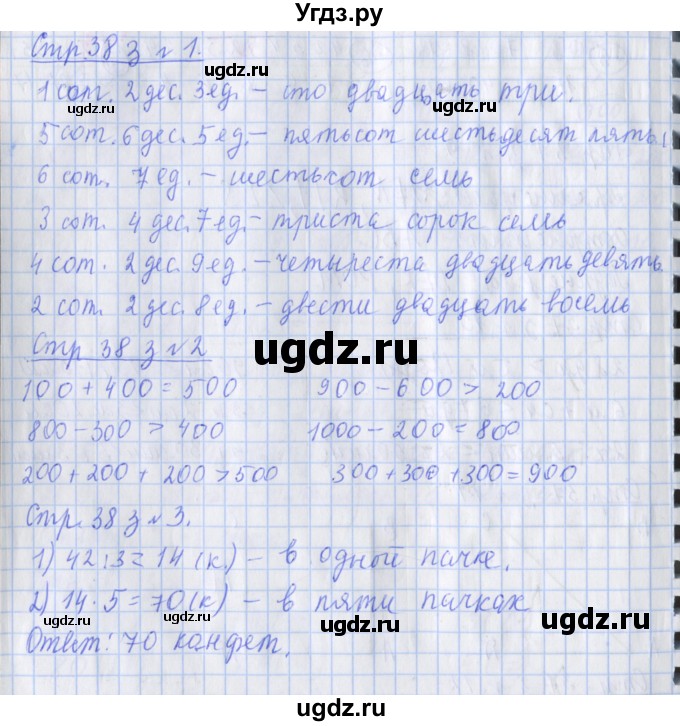 Угдз.ру
Стр. 38 з № 1.
1 сот. 2 дес. 3 ед. – сто двадцать три.
5 сот. 6 дес. 5 ед. – пятьсот шестьдесят пять
6 сот. 7 ед. – шестьсот семь
3 сот. 4 дес. 7 ед. – триста сорок семь
4 сот. 2 дес. 9 ед. – четыреста двадцать девять.
2 сот. 2 дес. 8 ед. – двести двадцать восемь
ugdz.ru
Стр 38 з № 2
100 + 400 = 500 900 – 600 > 200
800 – 300 > 400 1000 – 200 = 800
200 + 200 + 200 > 500 300 + 300 + 300 = 900
Стр. 38 з № 3.
1) 42 : 3 = 14 (к) – в одной пачке.
2) 14 · 5 = 70 (к) – в пяти пачках
Ответ: 70 конфет.
ugdz.ru